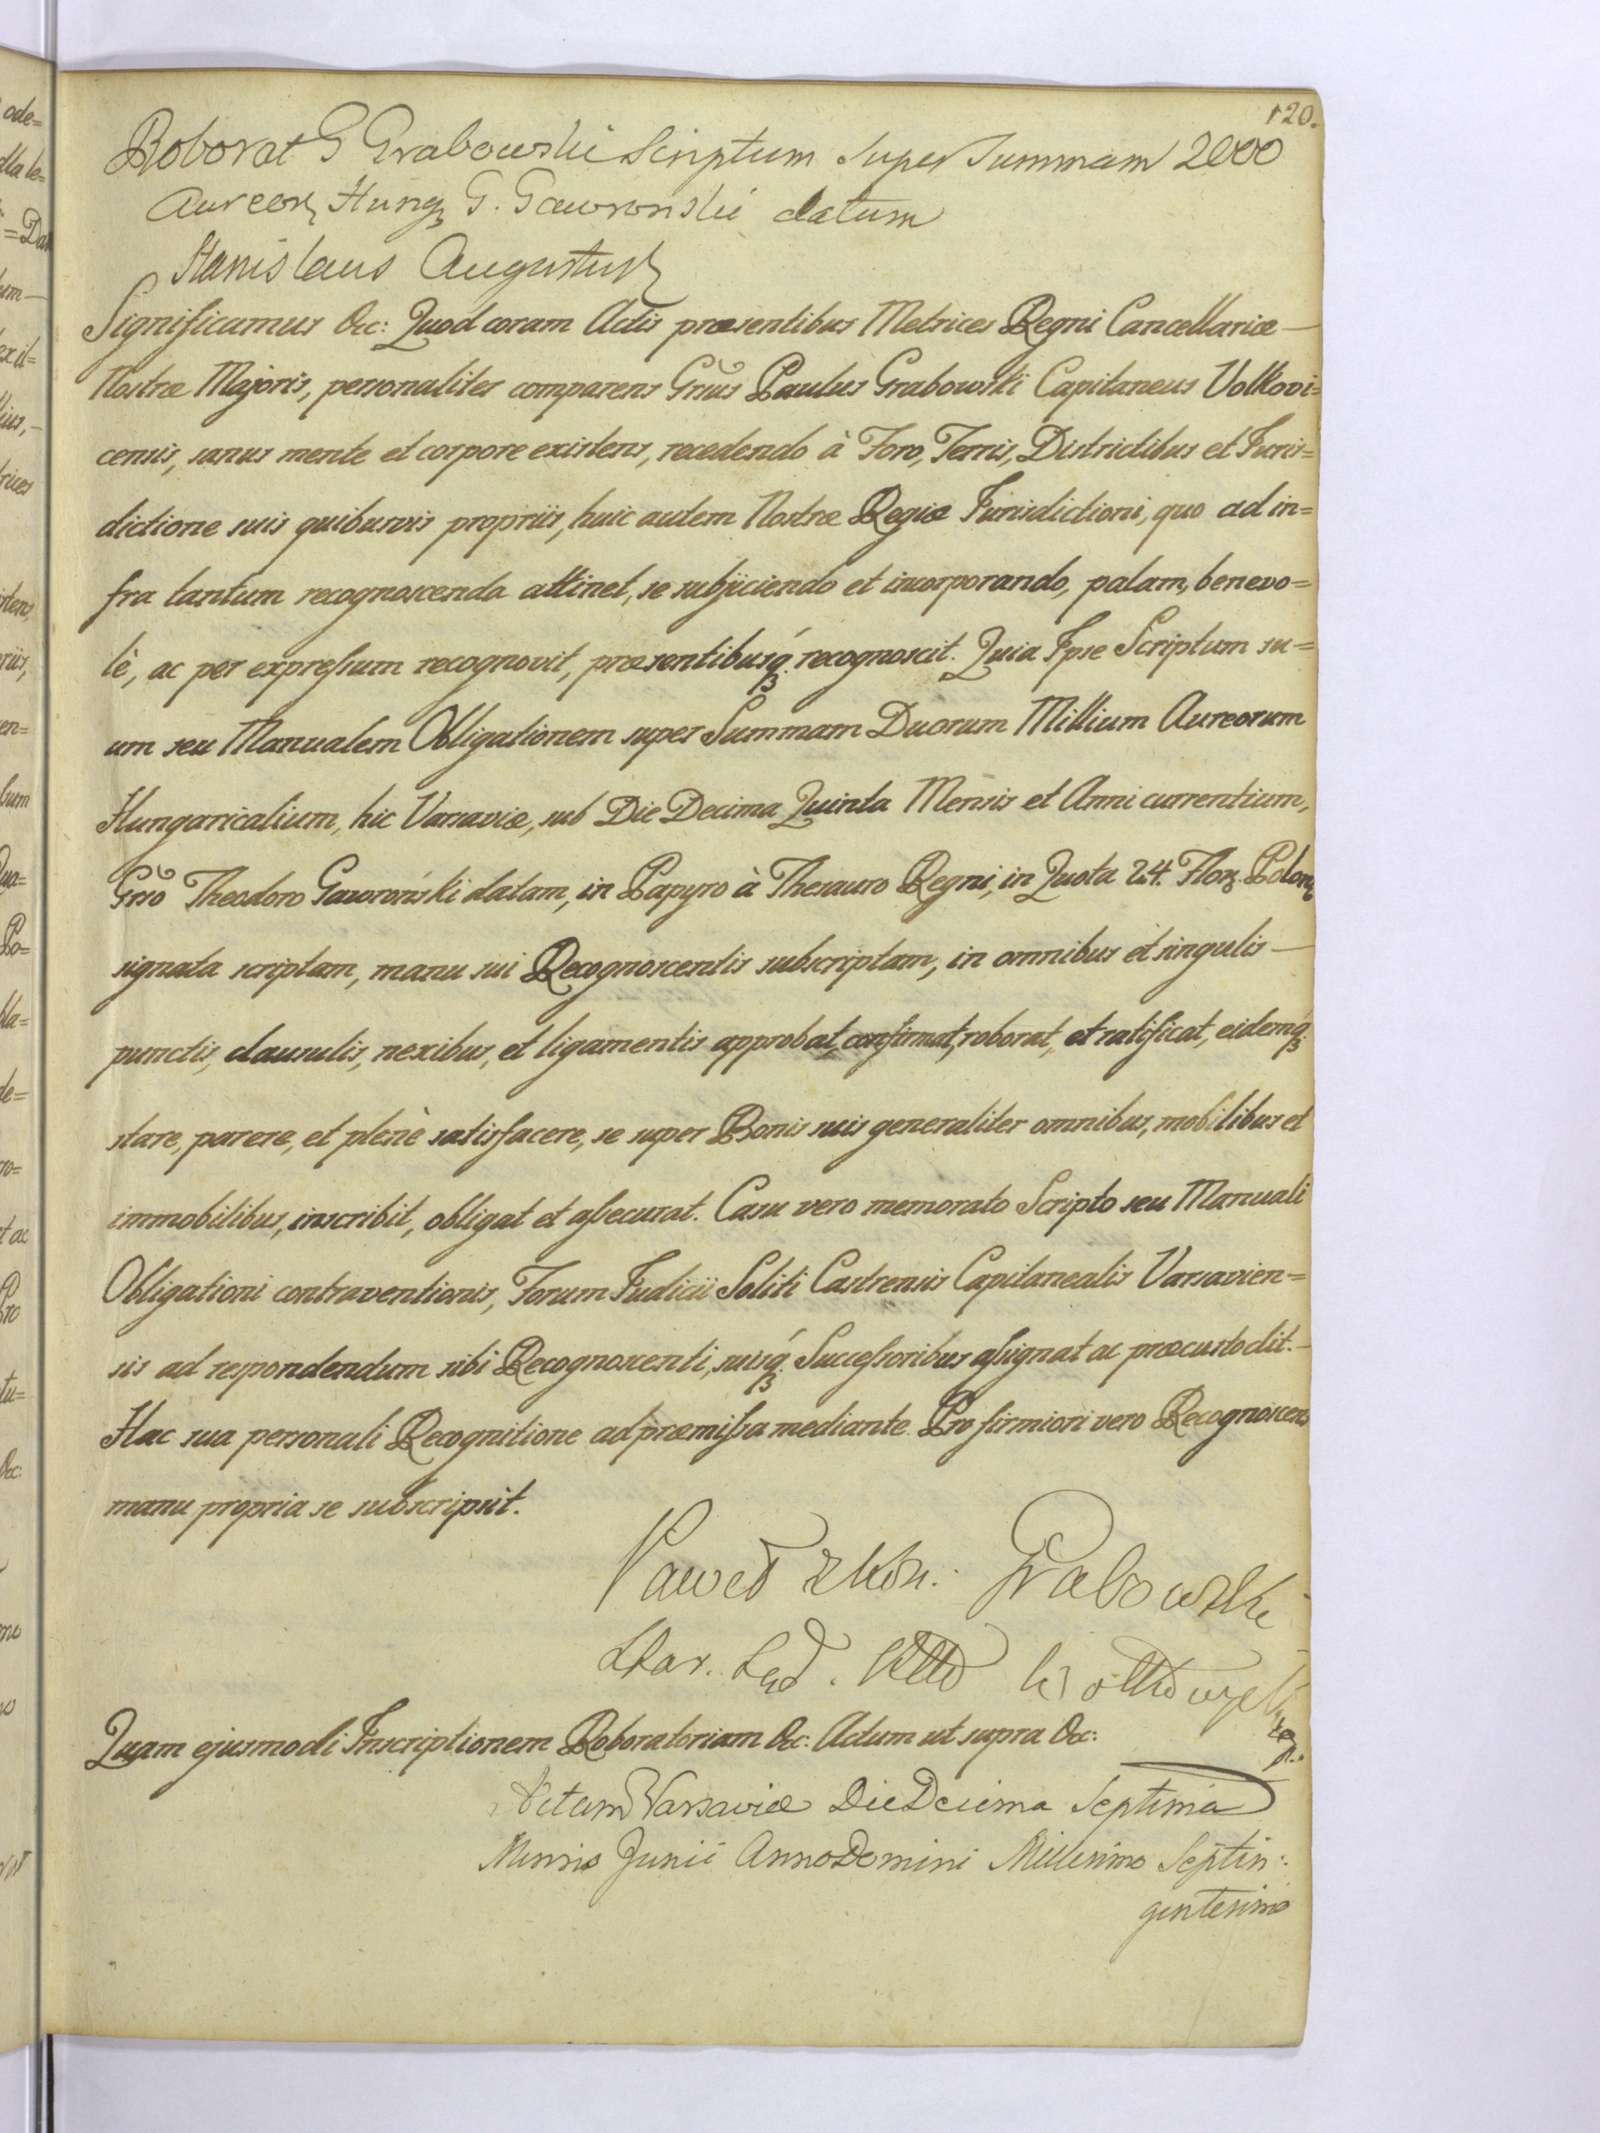 120.
Roborat G Grabowski Scriptum super Summam 2000
Aureorꝝ Hungꝝ G. Gawronski datum
Stanislaus Augustus
Significamus &c: Quod coram Actis præsentibus Metrices Regni Cancellariæ —
Nostræ Majoris, personaliter comparens Grsus Paulus Grabowski Capitaneus Volkovi=
censis, sanus mente et corpore existens, recedendo à Foro, Terris, Districtibus et Juris=
dictione suis quibusvis propriis, huic autem Nostræ Regiæ Jurisdictioni, quo ad in=
fra tantum recognoscenda attinet, se subjiciendo et incorporando, palam, benevo=
lè, ac per expressum recognovit, præsentibusq́ꝫ recognoscit. Quia Ipse Scriptum su=
um seu Manualem Obligationem super Summam Duorum Millium Aureorum
Hungaricalium, hic Varsaviæ, sub Die Decima Quinta Mensis et Anni currentium,
Grso Theodoro Gawroński datam, in Papyro à Thesauro Regni, in Quota 24. Florꝫ Polonꝫ
signata scriptam, manu sui Recognoscentis subscriptam, in omnibus et singulis —
punctis, clausulis, nexibus, et ligamentis approbat, confirmat, roborat, et ratificat, eidemq́ꝫ
stare, parere, et plenè satisfacere, se super Bonis suis generaliter omnibus, mobilibus et
immobilibus, inscribit, obligat et assecurat. Casu vero memorato Scripto seu Manuali
Obligationi contraventionis, Forum Judicii Soliti Castrensis Capitanealis Varsavien=
sis ad respondendum sibi Recognoscenti, suisq́ꝫ Successoribus assignat ac præcustodit. —
Hac sua personali Recognitione ad præmissa mediante. Pro firmiori vero Recognoscens
manu propria se subscripsit.
Paweł Grabowski
Quam ejusmodi Inscriptionem Roboratoriam &c: Actum ut supra &c:
Actum Varsaviæ Die Decima Septima
Mensis Junii Anno Domini Millesimo Septin:
gentesimo